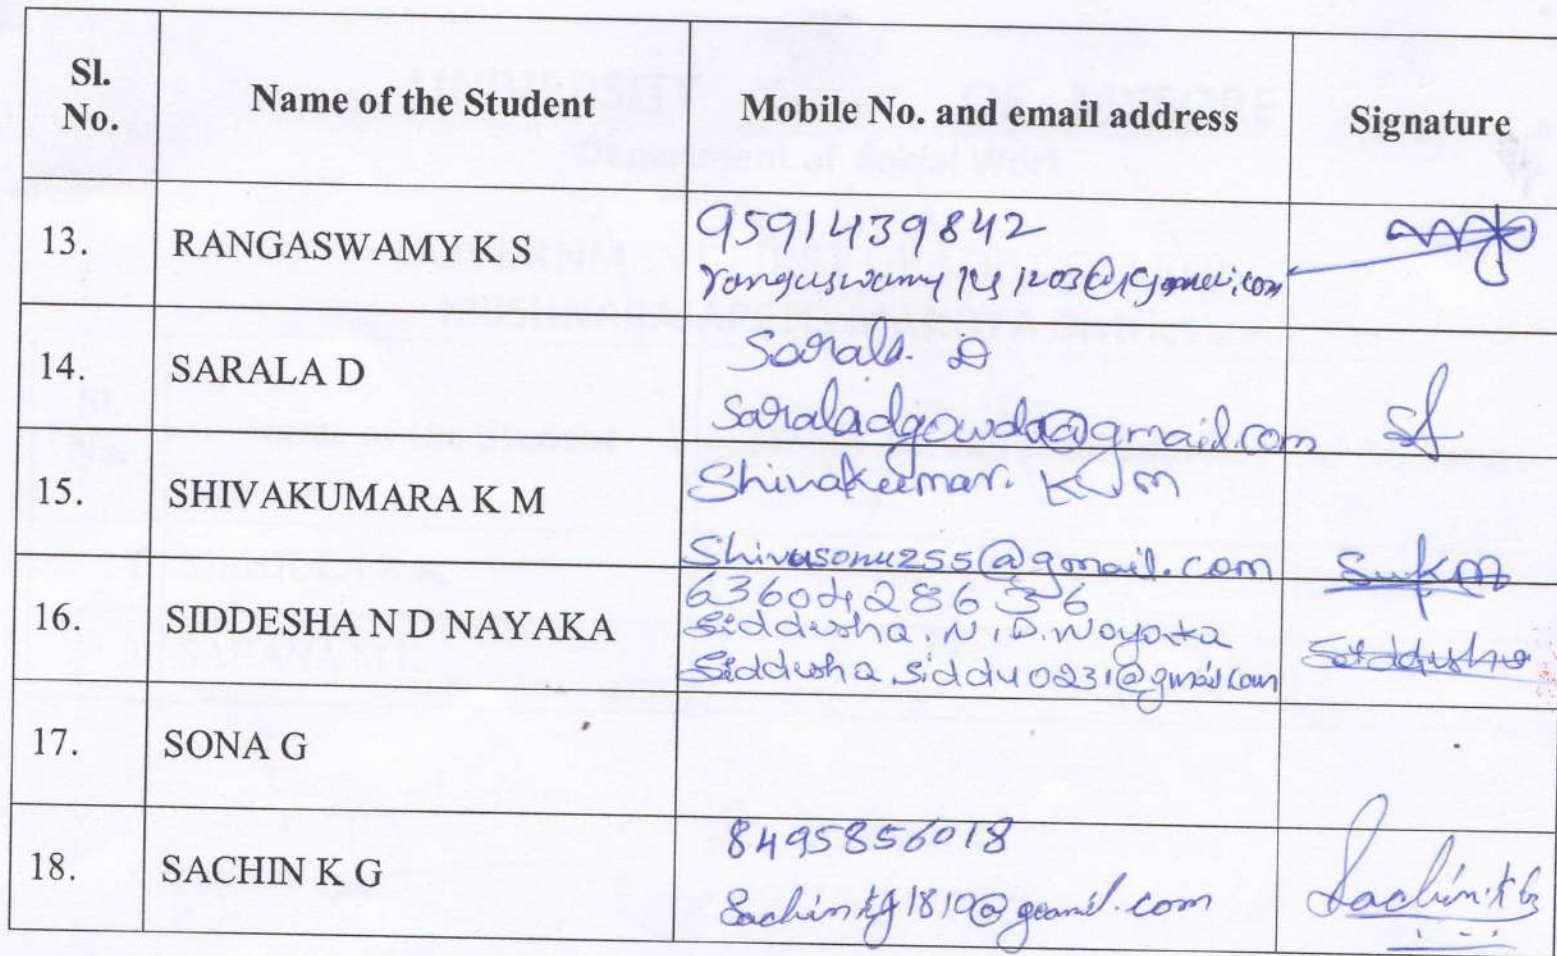 Sl. No.
Name of the Student
Mobile No. and email address
Signature
13.
RANGASWAMY K S
9591439842
14.
SARALA D
Sarala D
saraladgowda@gmail.com
15.
SHIVAKUMARA K M
Shivakumar. K M
Shivasonu255@gmail.com
16.
SIDDESHA N D NAYAKA
6360428636
Siddesha. N. D. Nayaka
Siddesha.siddu0231@gmail.com
Siddesha
17.
SONA G
18.
SACHIN K G
8495856018
Sachinkg1810@gmail.com
Sachin.K G